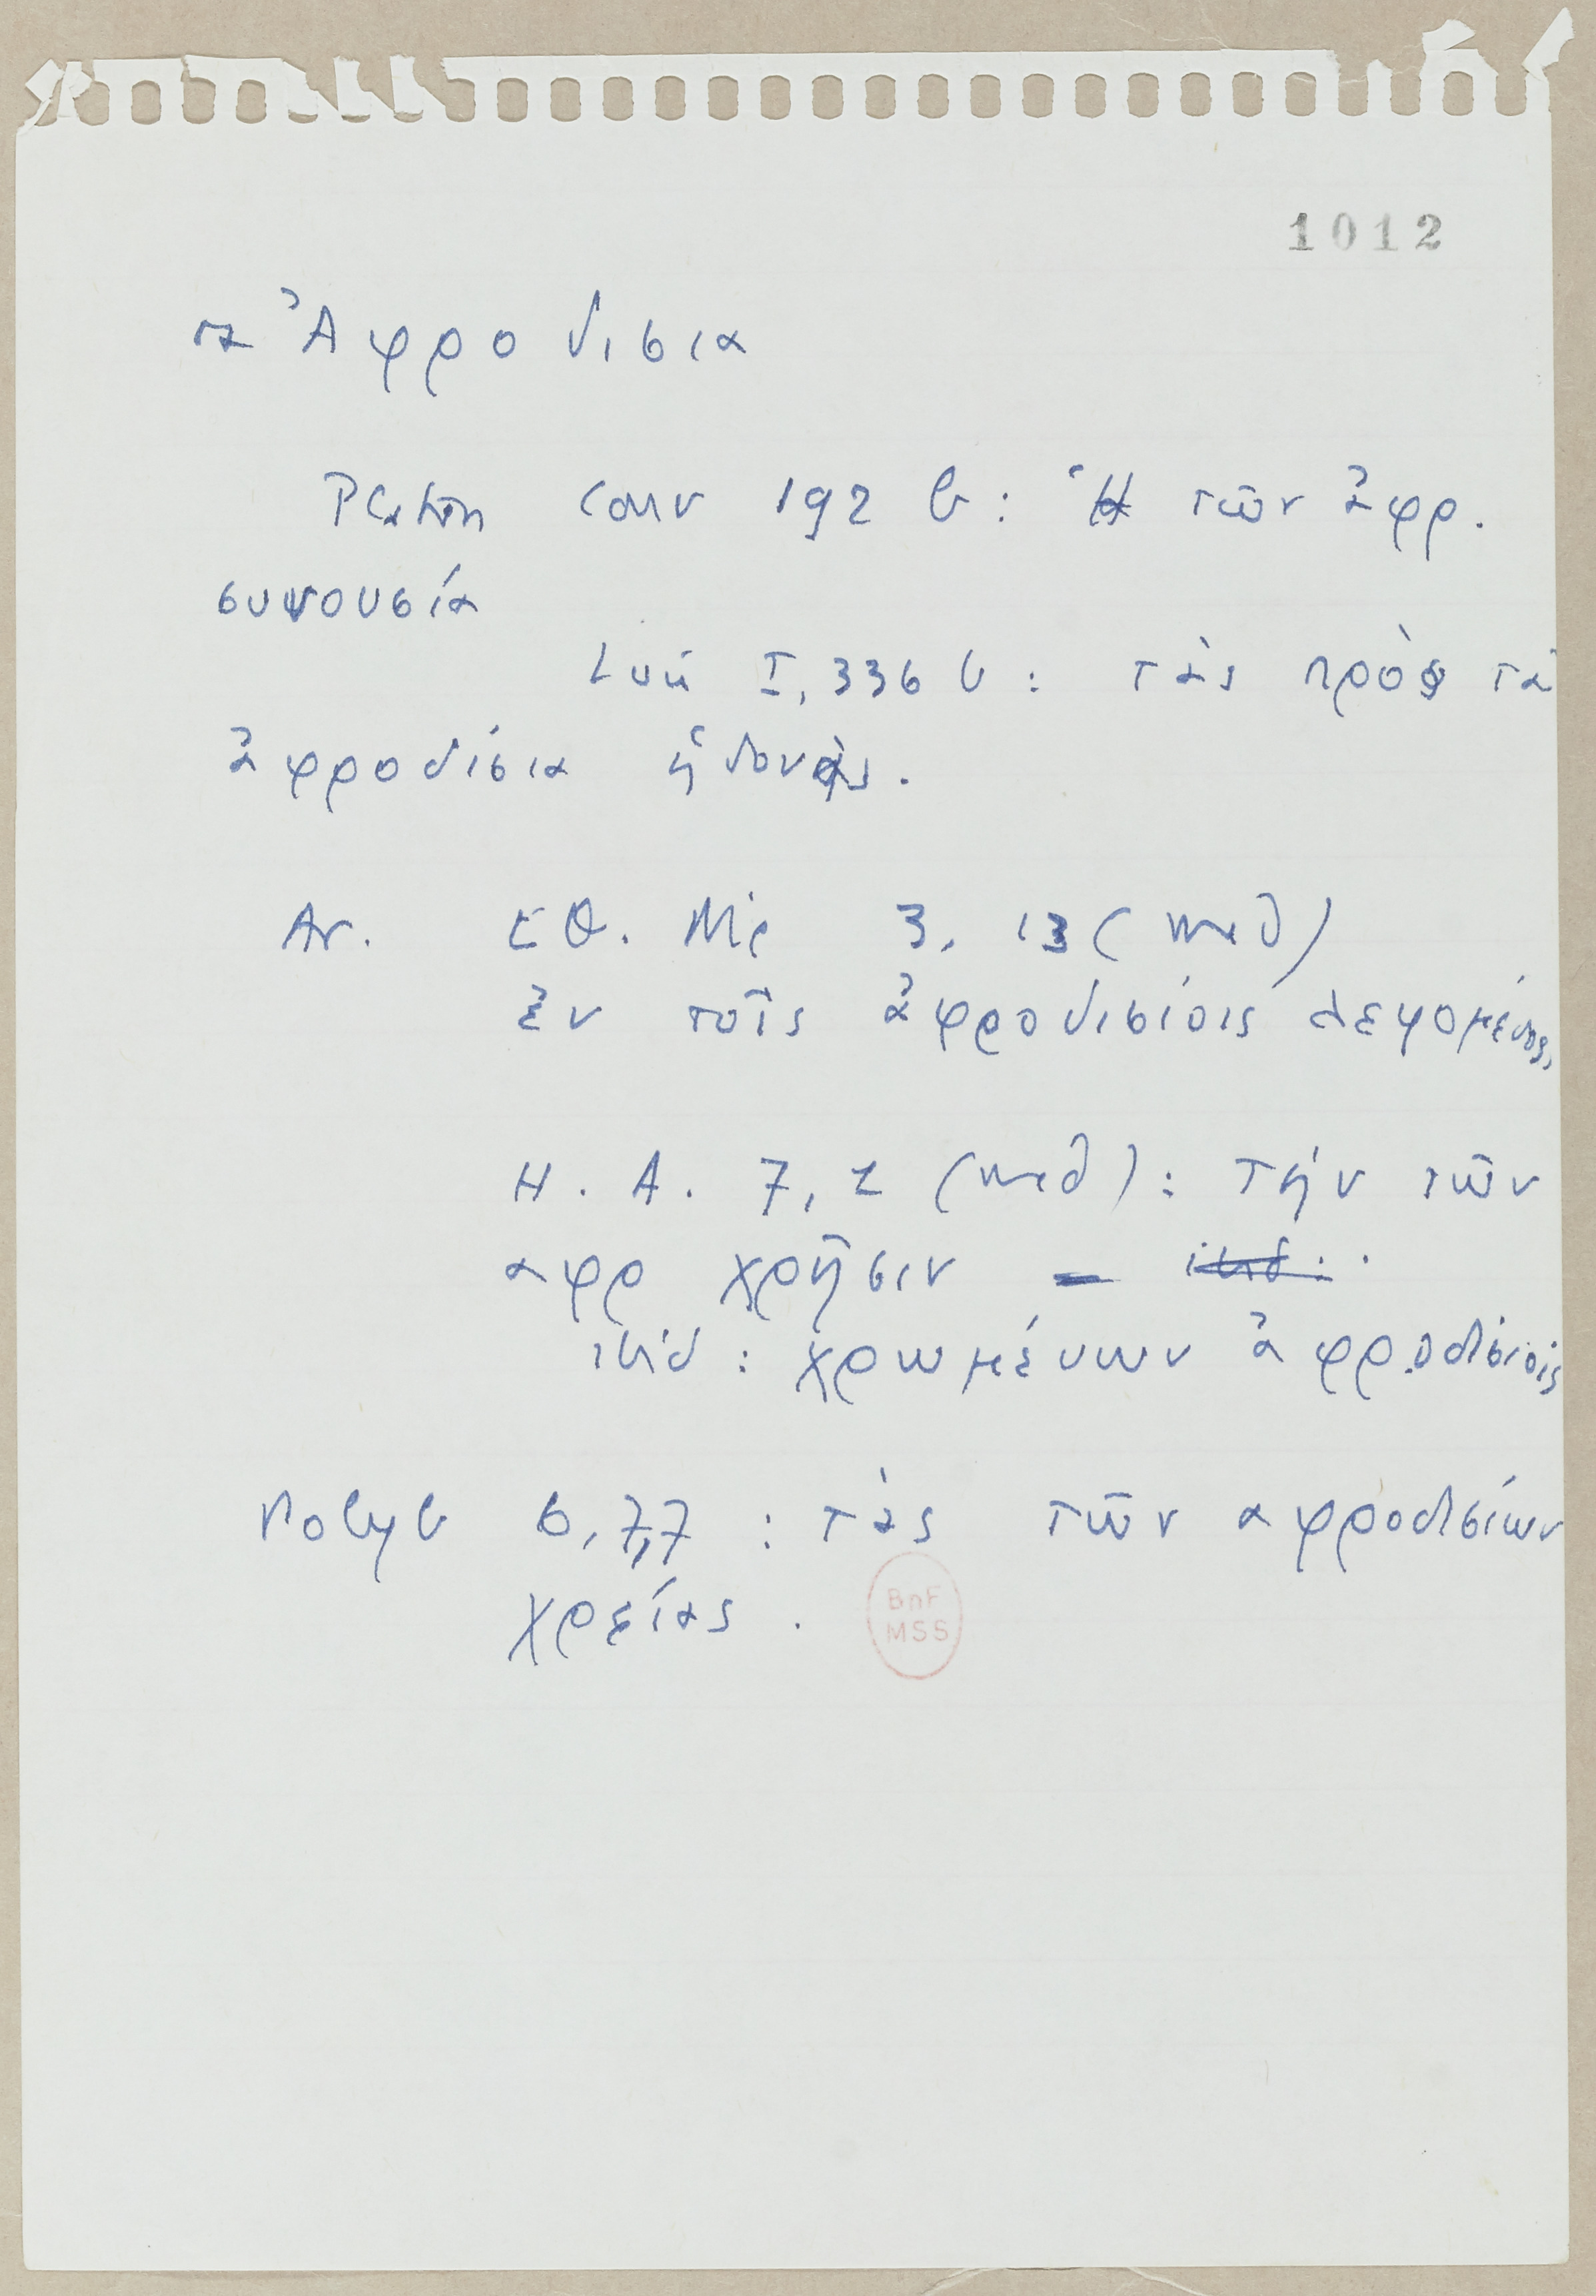 1012
τα Ἀφροδισια
Platon Conv 192 b : Ἡ τῶν ἀφρ.
συνουσία
I, 336 b : τὰς πρὸς τὰ
ἀφροδίσια ἡδονὰς.
Ar. Eθ. Nic 3, 13 (med)
ἐν τοῖς ἀφροδισίοις λεγομένοις,
H. A. 7, 1 (med) : τήν τῶν
αφρ χρῆσιν – ibid.
ibid : χρωμένων ἀφροδισίοις
Polyb 6,7,7 : τὰς τῶν αφροδισίων
χρείας .
BnF
MSS